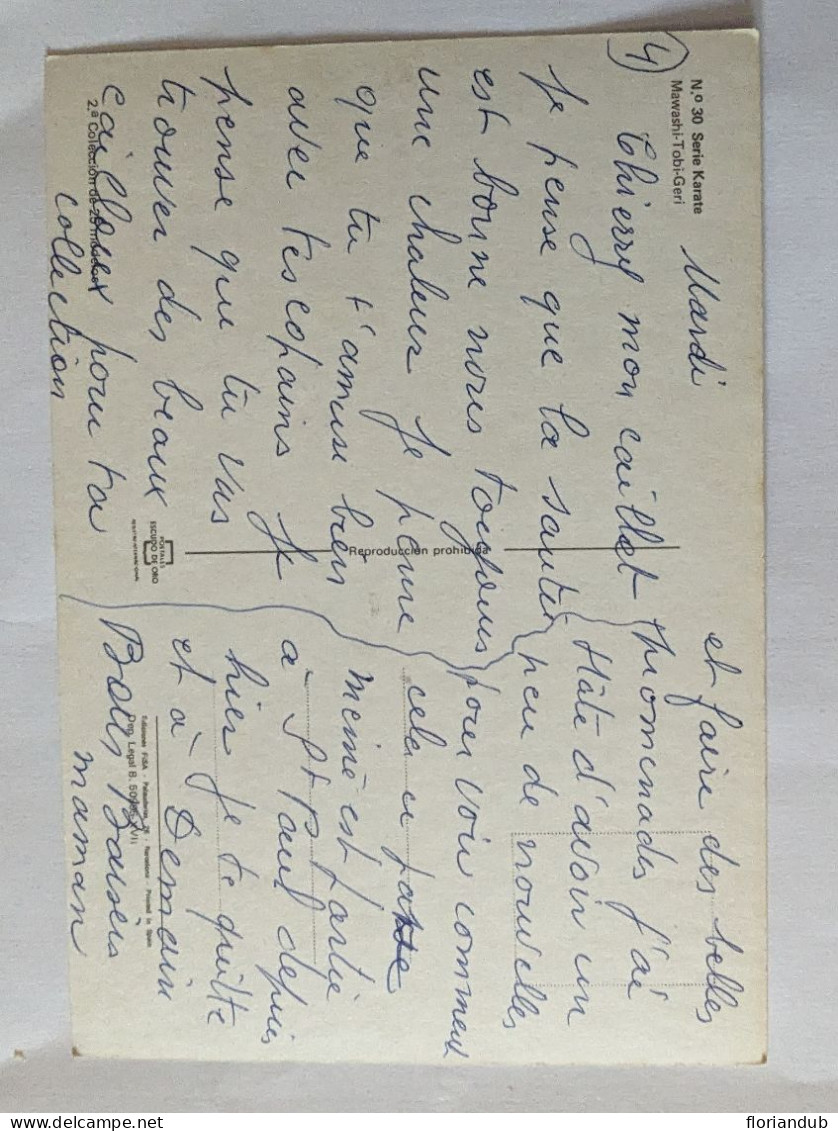 N.º 30 Serie Karate
Mawashi-Tobi-Geri
4
Mardi
Thierry mon caillet
Je pense que la santé
est bonne nous toujours
une chaleur Je pense
que tu t'amuse bien
avec tes copains Je
pense que tu vas
trouver des beaux
cailloux pour ta
collection
2.ª Colección de 25 modelos
Reproducción prohibida
POSTALES
ESCUDO DE ORO
et faire des belles
promenades j'ai
Hâte d'avoir un
peu de nouvelles
pour voir comment
cela ce passe
mémé est partie
a St Paul depuis
hier je te quitte
et à Demain
Bons Baisers
maman
Ediciones FISA - Palaudarias, 26 - Barcelona - Printed in Spain
Dep. Legal B. XVII
floriandub